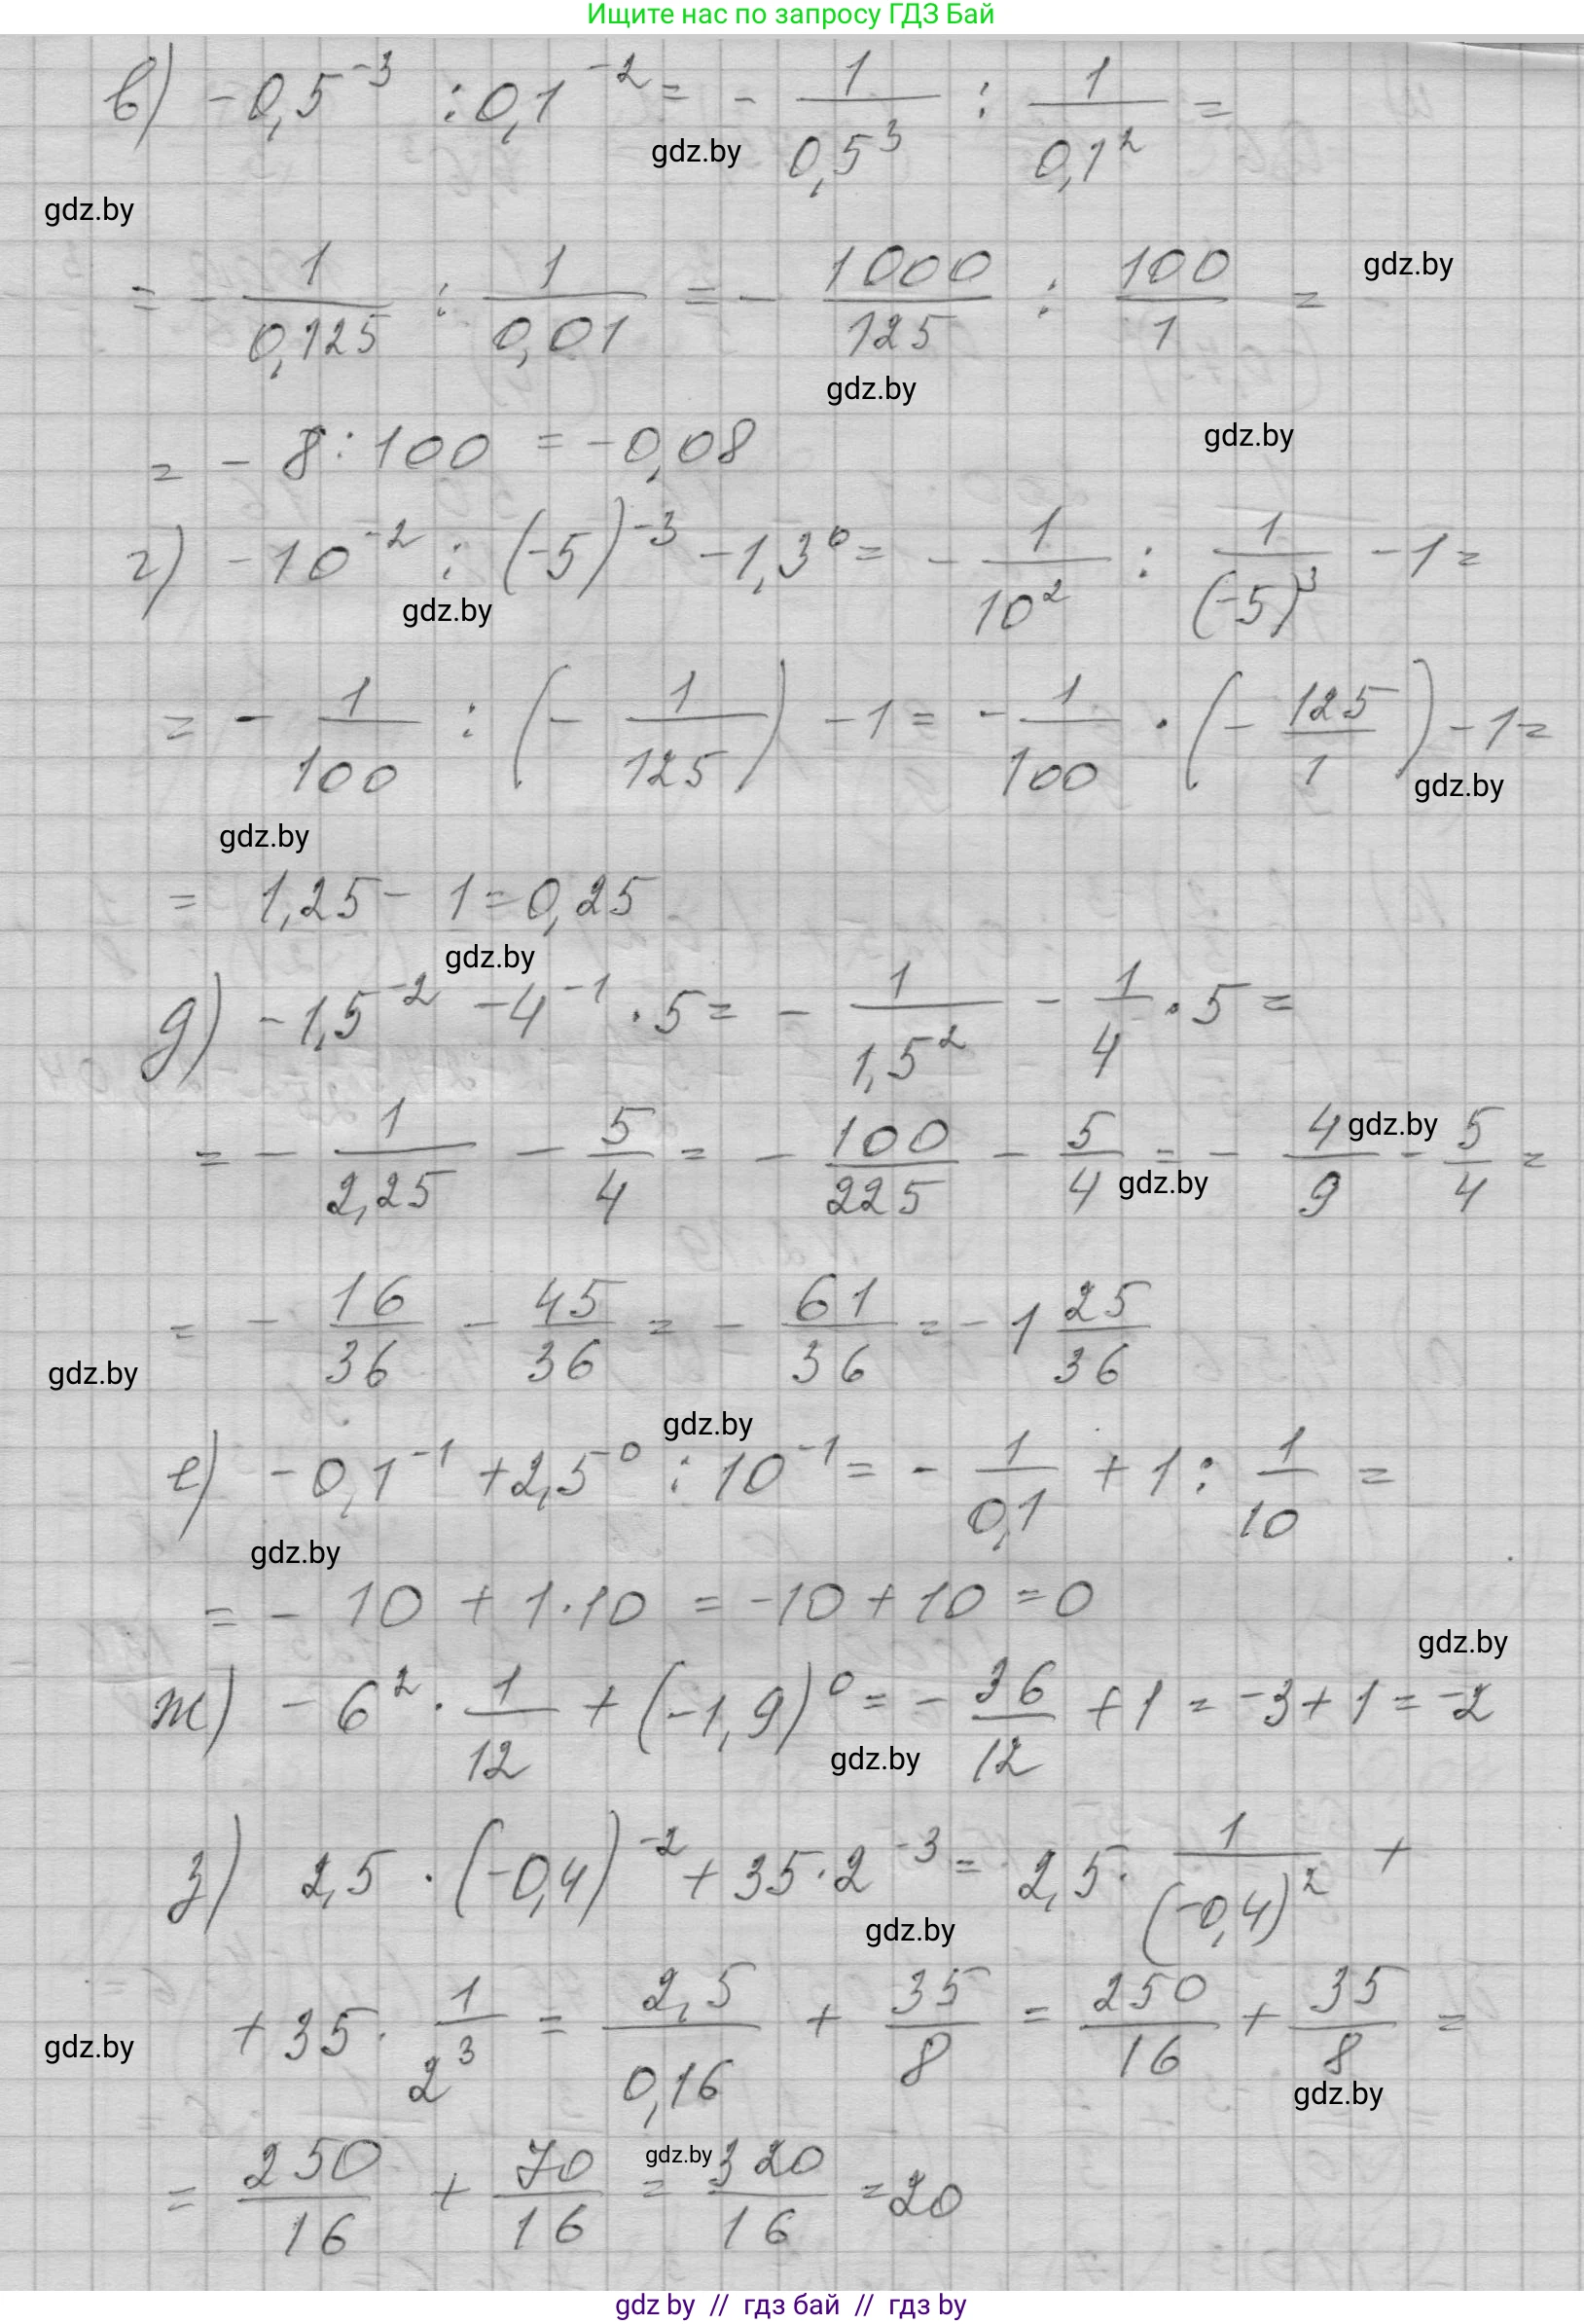 Ищите нас по запросу ГДЗ Бай
в) -0,5^{-3} : 0,1^{-2} = - 1/0,5^3 : 1/0,1^2 =
gdz.by
gdz.by
= - 1/0,125 : 1/0,01 = - 1000/125 : 100/1 =
gdz.by
gdz.by
= - 8 : 100 = -0,08
gdz.by
г) -10^{-2} : (-5)^{-3} - 1,3^0 = - 1/10^2 : 1/(-5)^3 - 1 =
gdz.by
= - 1/100 : (- 1/125) - 1 = - 1/100 · (- 125/1) - 1 =
gdz.by
gdz.by
= 1,25 - 1 = 0,25
gdz.by
д) -1,5^{-2} - 4^{-1} · 5 = - 1/1,5^2 - 1/4 · 5 =
= - 1/2,25 - 5/4 = - 100/225 - 5/4 = - 4/9 - 5/4 =
gdz.by
gdz.by
= - 16/36 - 45/36 = - 61/36 = - 1 25/36
gdz.by
gdz.by
е) -0,1^{-1} + 2,5^{-0} : 10^{-1} = - 1/0,1 + 1 : 1/10 =
gdz.by
= - 10 + 1·10 = -10 + 10 = 0
gdz.by
ж) - 6^2 · 1/12 + (-1,9)^0 = - 36/12 + 1 = -3 + 1 = -2
gdz.by
з) 2,5 · (-0,4)^{-2} + 35·2^{-3} = 2,5 · 1/(-0,4)^2 +
gdz.by
+ 35 · 1/2^3 = 2,5/0,16 + 35/8 = 250/16 + 35/8 =
gdz.by
gdz.by
= 250/16 + 70/16 = 320/16 = 20
gdz.by
gdz by // гдз бай // гдз by